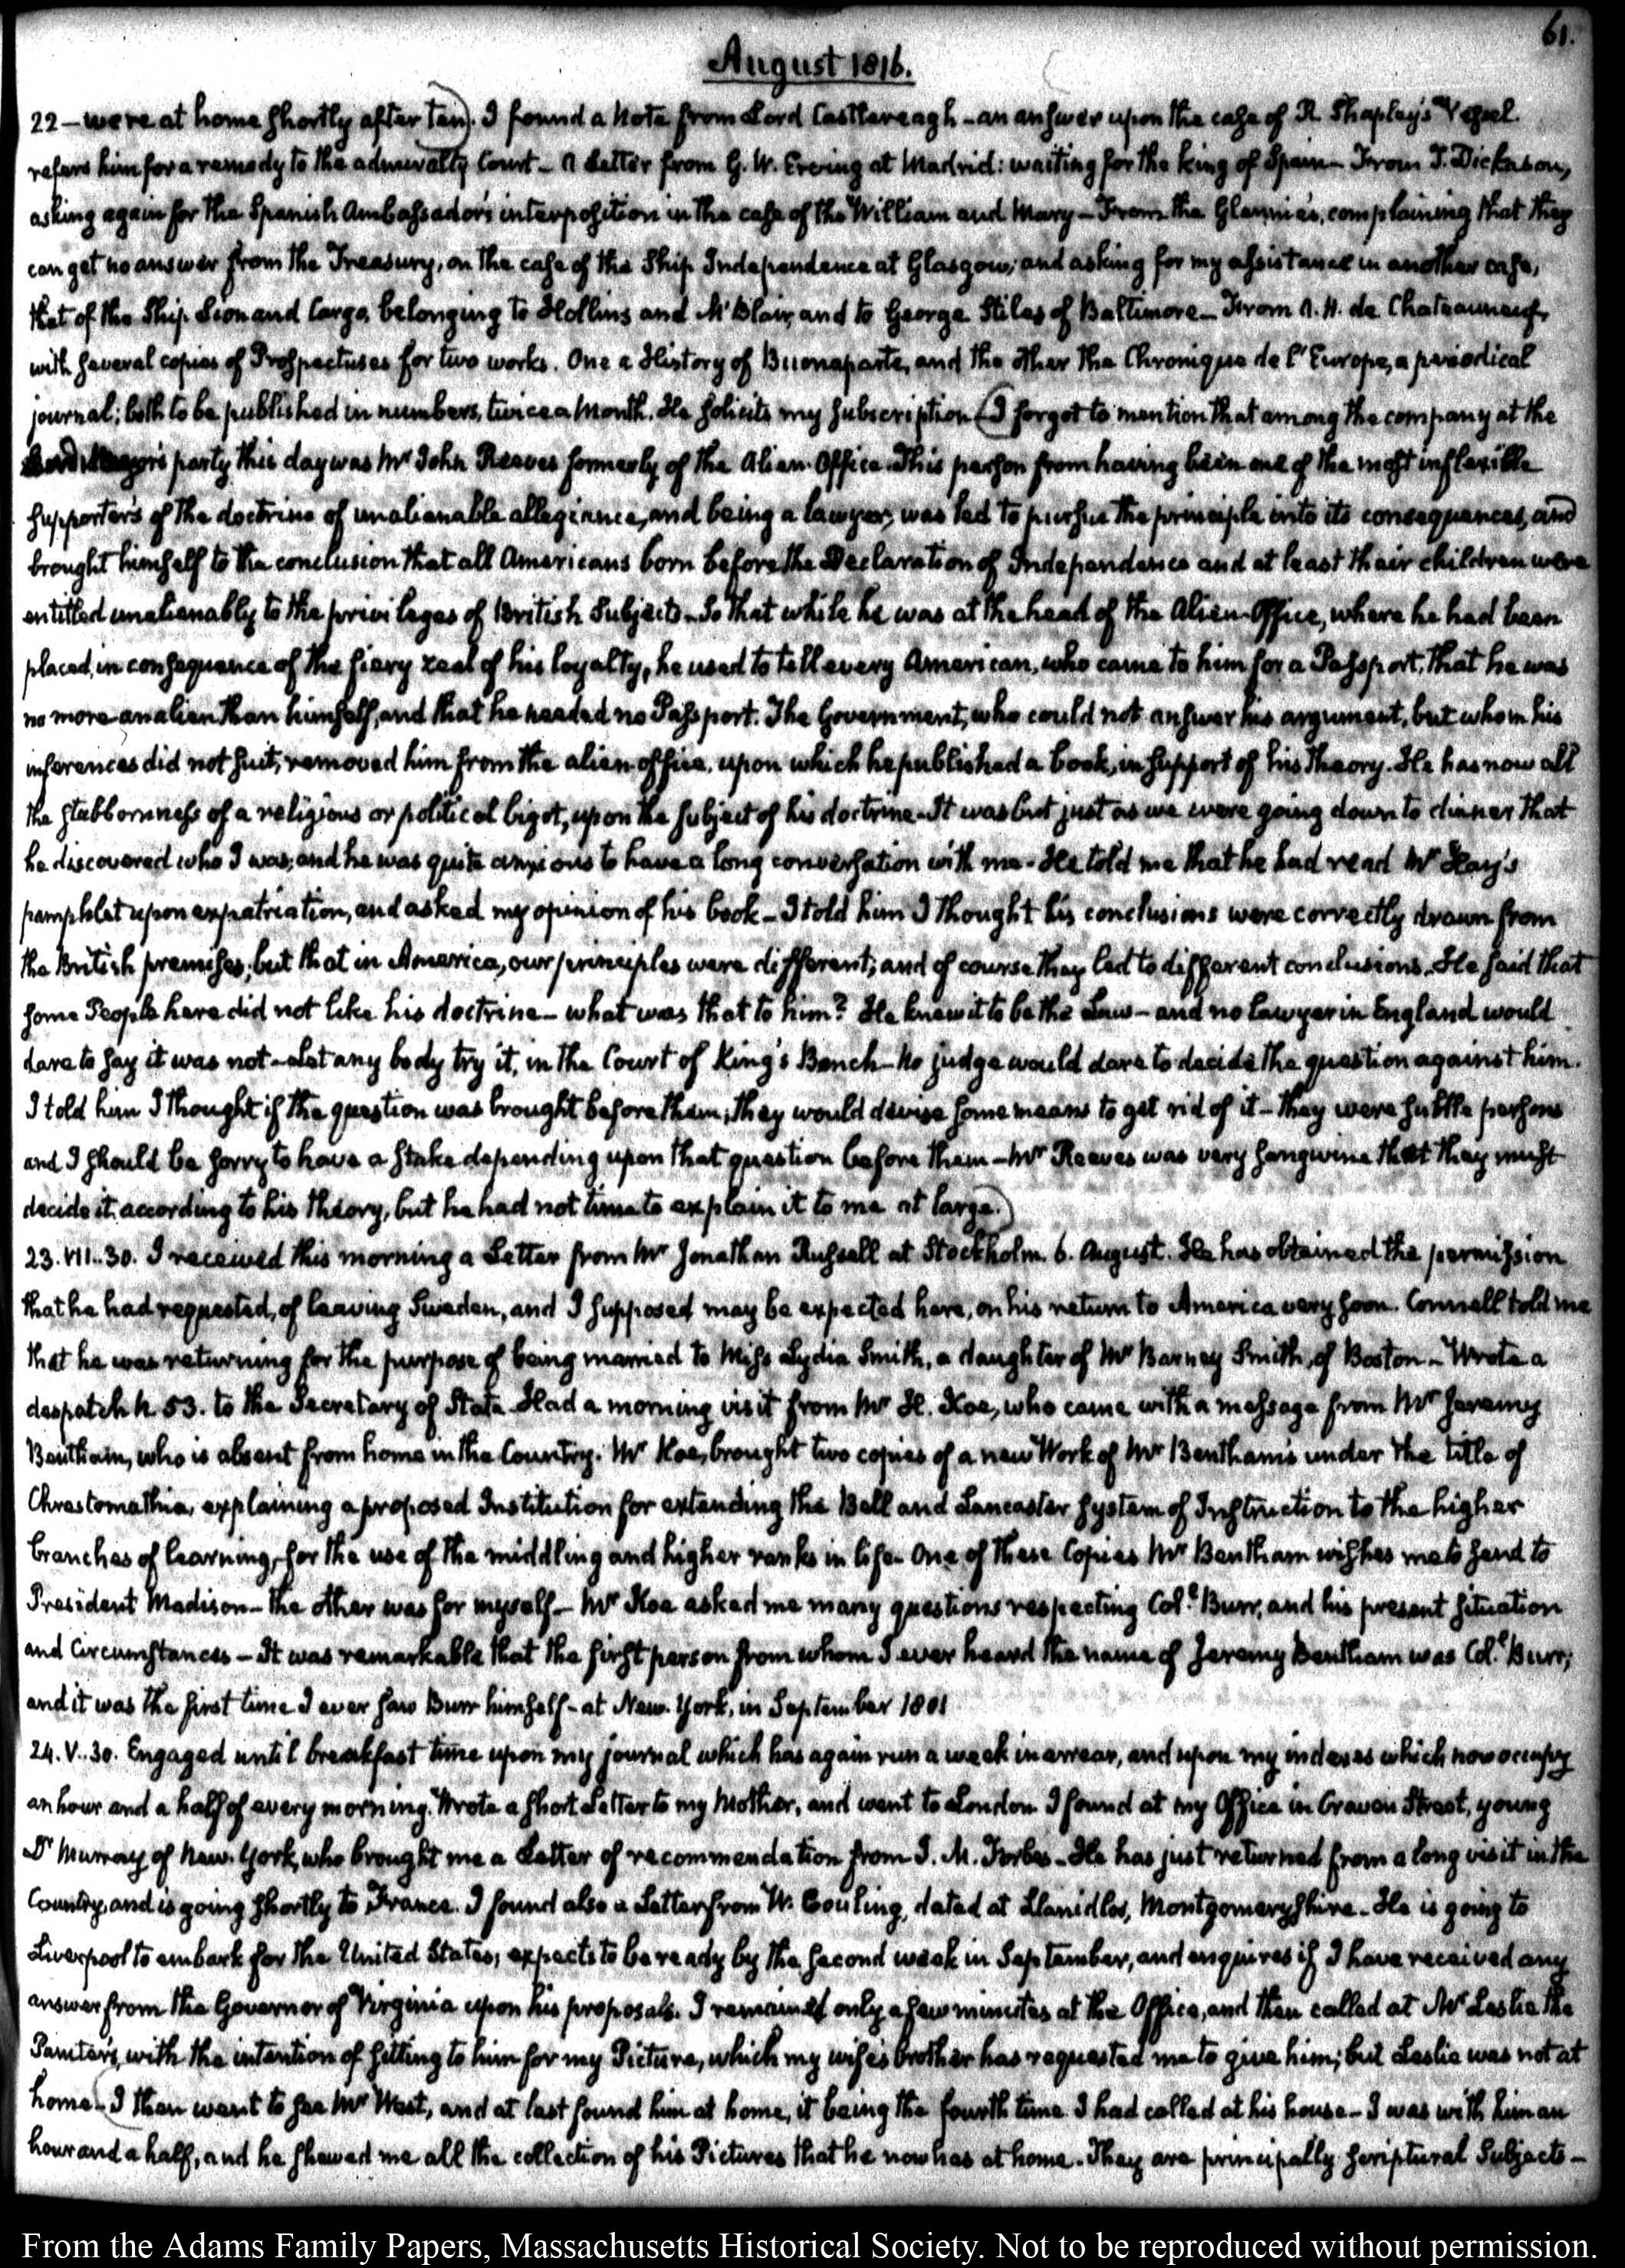 61.
August 1816.
22 – were at home shortly after ten). I found a Note from Lord Castlereagh – an answer upon the case of R. Shapley's Vessel.
refers him for a remedy to the admiralty Court – A Letter from G. W. Erving at Madrid: waiting for the king of Spain – From T. Dickason,
asking again for the Spanish Ambassador's interposition in the case of the William and Mary – From the Glennie's, complaining that they
can get no answer from the Treasury, on the case of the Ship Independence at Glasgow; and asking for my assistance in another case,
that of the Ship Leon and Cargo, belonging to Hollins and McBlair, and to George Stiles of Baltimore – From A. H. de Chateauneuf,
with several copies of Prospectuses for two works. One a History of Buonaparte, and the other the Chronique de l'Europe, a periodical
journal; both to be published in numbers, twice a Month. He solicits my subscription (I forgot to mention that among the company at the
Lord Mayor's party this day was Mr John Reeves formerly of the Alien-Office. This person from having been one of the most inflexible
supporters of the doctrine of unalienable allegiance, and being a lawyer, was led to pursue the principle into its consequences, and
brought himself to the conclusion that all Americans born before the Declaration of Independence and at least their children were
entitled unalienably to the privileges of British Subjects – So that while he was at the head of the Alien-Office, where he had been
placed, in consequence of the fiery zeal of his loyalty, he used to tell every American, who came to him for a Passport, that he was
no more an alien than himself, and that he needed no Passport. The Government, who could not answer his argument, but whom his
inferences did not suit, removed him from the alien office, upon which he published a book, in support of his theory. He has now all
the stubbornness of a religious or political bigot, upon the subject of his doctrine – It was but just as we were going down to dinner that
he discovered who I was; and he was quite anxious to have a long conversation with me – He told me that he had read Mr Hay's
pamphlet upon expatriation, and asked my opinion of his book – I told him I thought his conclusions were correctly drawn from
the British premises; but that in America, our principles were different; and of course they led to different conclusions. He said that
some People here did not like his doctrine – what was that to him? He knew it to be the Law – and no lawyer in England would
dare to say it was not – Let any body try it, in the Court of King's Bench – No judge would dare to decide the question against him.
I told him I thought if the question was brought before them, they would devise some means to get rid of it – They were subtle persons
and I should be sorry to have a stake depending upon that question before them – Mr Reeves was very sanguine that they must
decide it according to his theory, but he had not time to explain it to me at large.)
23. VII..30. I received this morning a Letter from Mr Jonathan Russell at Stockholm. 6. August. He has obtained the permission
that he had requested, of leaving Sweden, and I supposed may be expected here, on his return to America very soon. Connell told me
that he was returning for the purpose of being married to Miss Lydia Smith, a daughter of Mr Barney Smith, of Boston – Wrote a
despatch N. 53. to the Secretary of State. Had a morning visit from Mr H. Koe, who came with a message from Mr Jeremy
Bentham, who is absent from home in the Country. Mr Koe, brought two copies of a new Work of Mr Bentham's under the title of
Chrestomathia, explaining a proposed Institution for extending the Bell and Lancaster System of Instruction to the higher
branches of learning, for the use of the middling and higher ranks in life – One of these Copies Mr Bentham wishes me to send to
President Madison – the other was for myself – Mr Koe asked me many questions respecting Coll. Burr, and his present situation
and Circumstances – It was remarkable that the first person from whom I ever heard the name of Jeremy Bentham was Coll. Burr;
and it was the first time I ever saw Burr himself – at New-York, in September 1801
24. V..30. Engaged until breakfast time upon my journal which has again run a week in arrear, and upon my indexes which now occupy
an hour and a half of every morning. Wrote a short Letter to my Mother, and went to London. I found at my Office in Craven Street, young
Dr Murray of New-York, who brought me a Letter of recommendation from J. M. Forbes – He has just returned from a long visit in the
Country, and is going shortly to France. I found also a Letter from W. Couling, dated at Llanidlos, Montgomeryshire – He is going to
Liverpool to embark for the United States; expects to be ready by the second week in September, and enquires if I have received any
answer from the Governor of Virginia upon his proposals. I remained only a few minutes at the Office, and then called at Mr Leslie the
Painter's, with the intention of sitting to him for my Picture, which my wife's brother has requested me to give him; but Leslie was not at
home – (I then went to see Mr West, and at last found him at home, it being the fourth time I had called at his house – I was with him an
hour and a half, and he shewed me all the collection of his Pictures that he now has at home. They are principally scriptural Subjects –
From the Adams Family Papers, Massachusetts Historical Society. Not to be reproduced without permission.